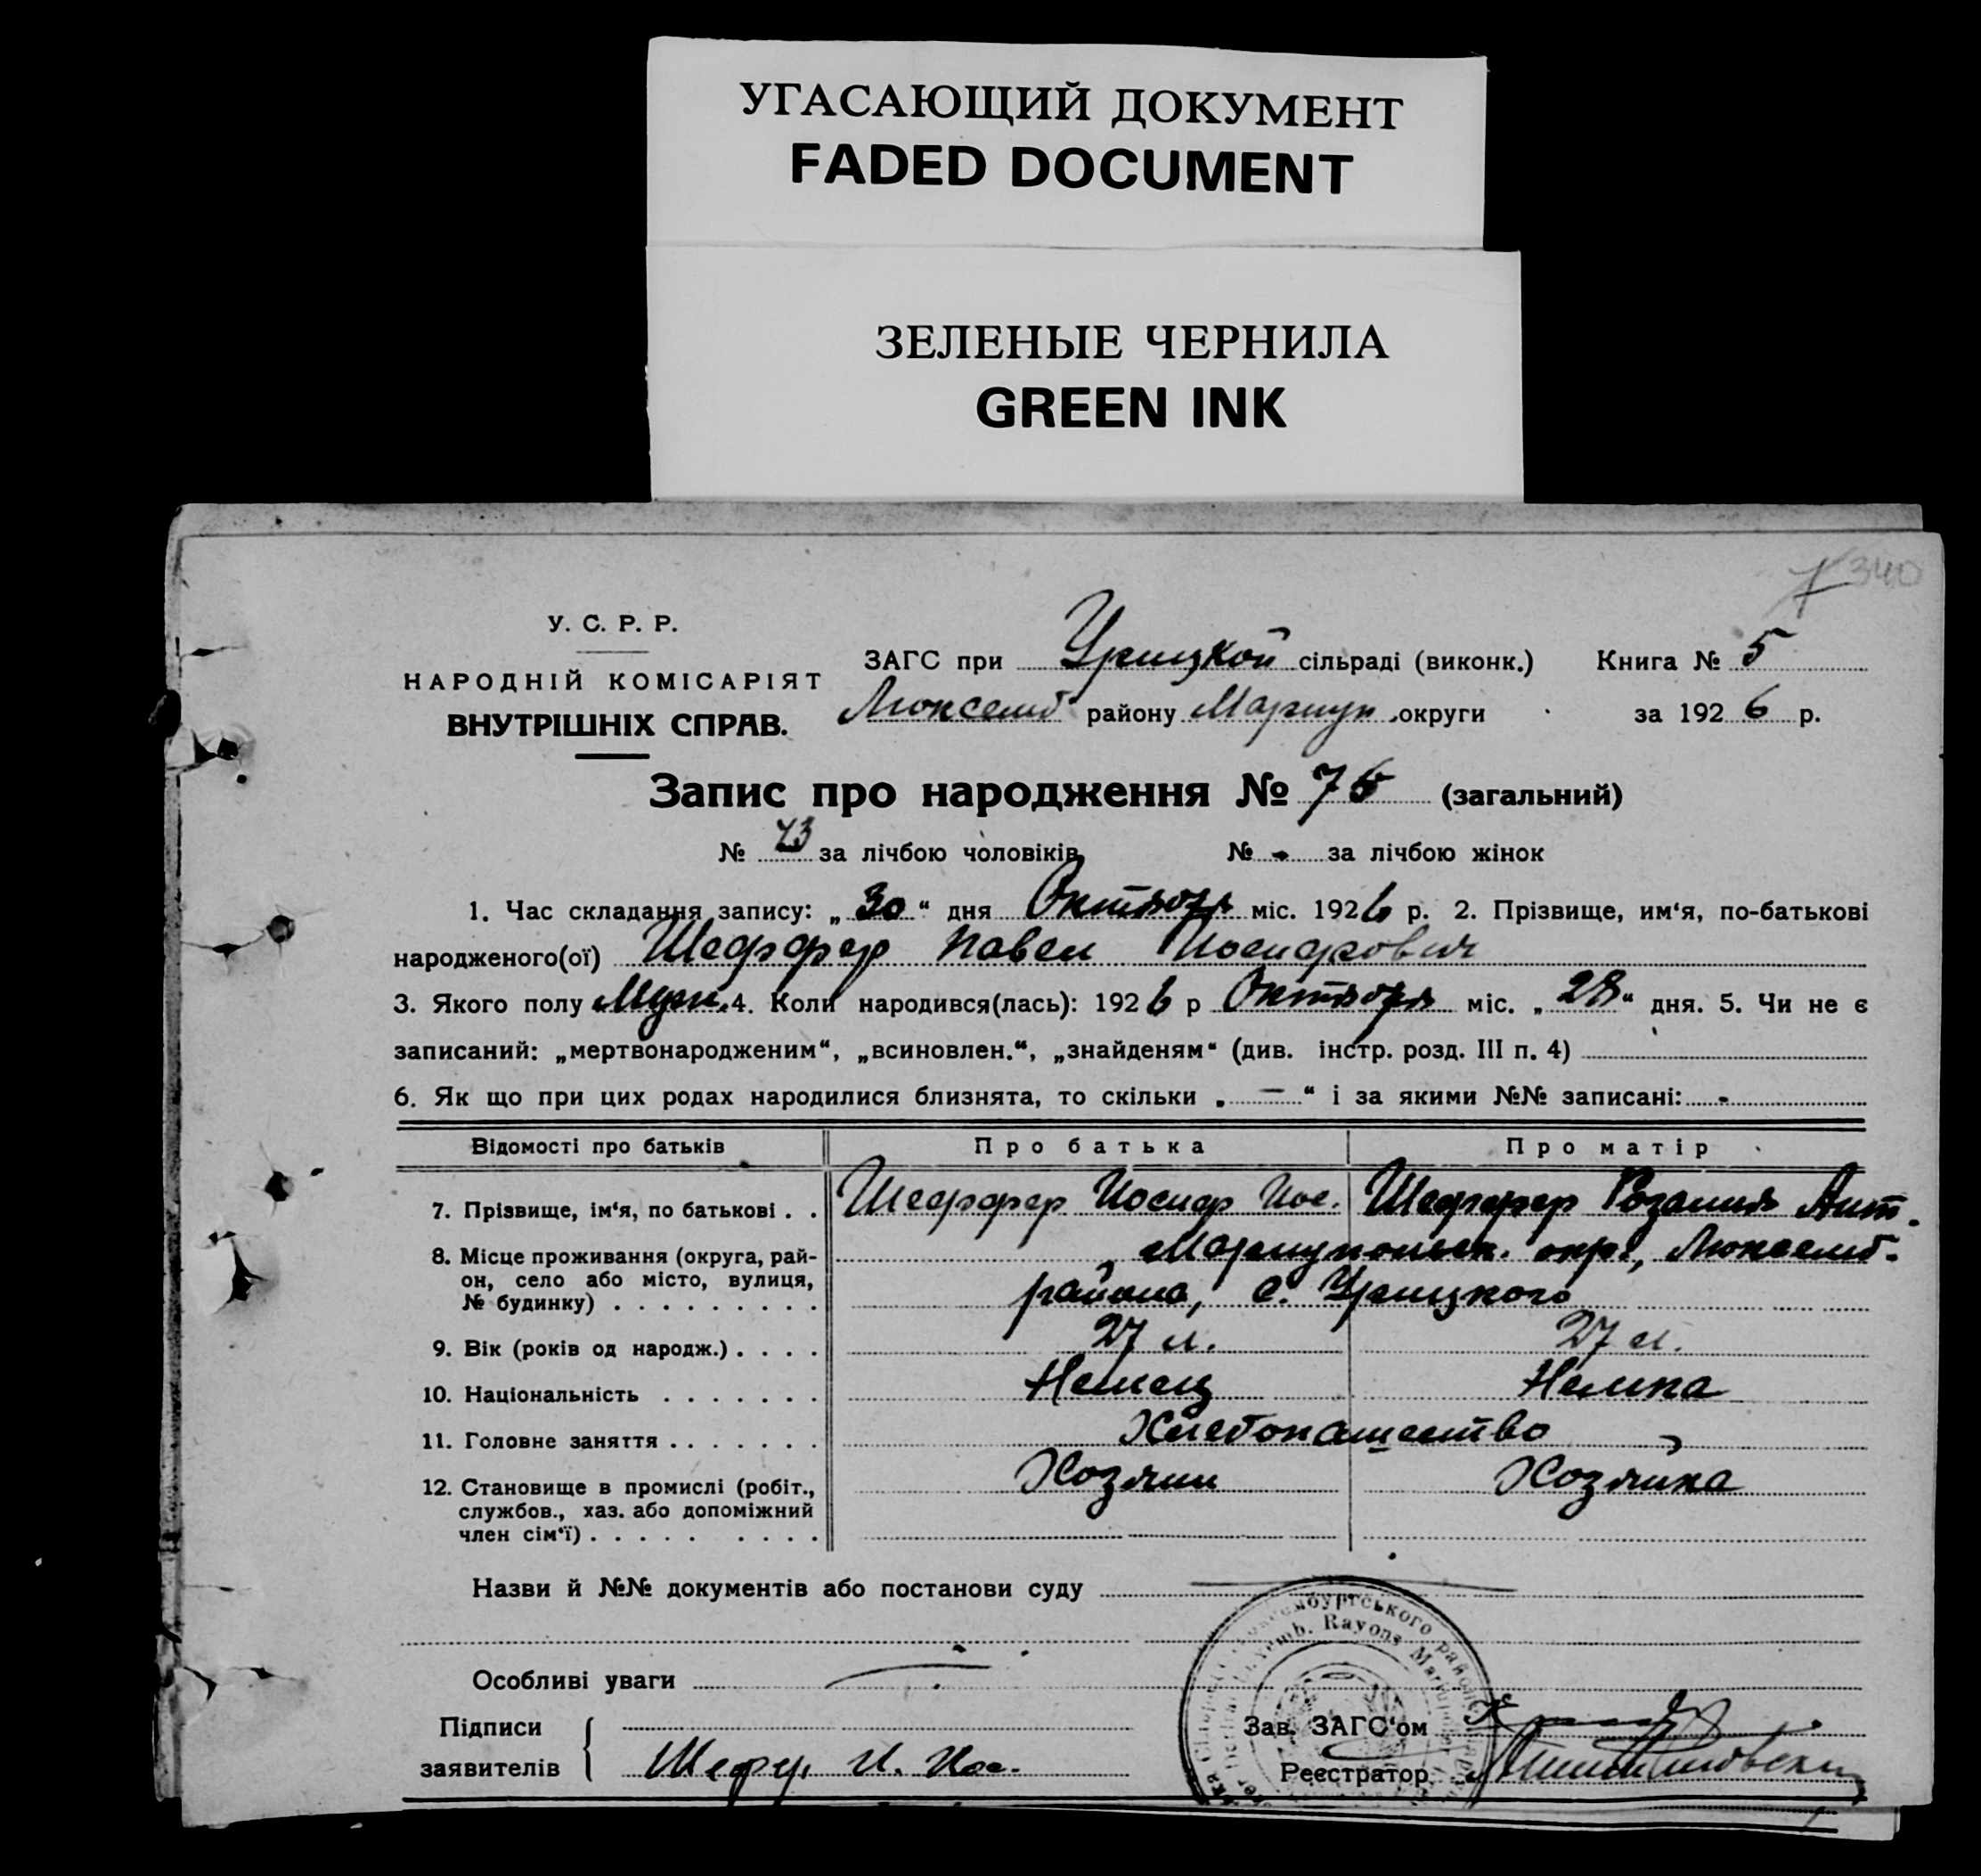 УГАСАЮЩИЙ ДОКУМЕНТ
FADED DOCUMENT
ЗЕЛЕНЫЕ ЧЕРНИЛА
GREEN INK
340
У. С. Р. Р.
НАРОДНІЙ КОМІСАРІЯТ
ВНУТРІШНІХ СПРАВ.
ЗАГС при Урицкой сільраді (виконк.) Книга № 5
Люксемб району Мариуп. округи за 1926 р.
Запис про народження № 76 (загальний)
№ 43 за лічбою чоловіків № - за лічбою жінок
1. Час складання запису: „30“ дня Октября міс. 1926 р. 2. Прізвище, им‘я, по-батькові
народженого(ої) Шеффер Павел Иосифович
3. Якого полу Муж. 4. Коли народився(лась): 1926 р Октября міс. „28“ дня. 5. Чи не є
записаний: „мертвонародженим“, „всиновлен.“, „знайденям“ (див. інстр. розд. III п. 4)
6. Як що при цих родах народилися близнята, то скільки „—“ і за якими №№ записані: -
Відомості про батьків Про батька Про матір
7. Прізвище, ім‘я, по батькові . . Шеффер Иосиф Иос. Шеффер Розалия Ант.
8. Місце проживання (округа, рай-
он, село або місто, вулиця,
№ будинку) . . . . . . . . .
Мариупольск. окр., Люксемб.
района, с. Урицкого
9. Вік (років од народж.) . . . . 27 л. 27 л.
10. Національність . . . . . . . Немец Немка
11. Головне заняття . . . . . . . Хлебопашество
12. Становище в промислі (робіт.,
службов., хаз. або допоміжний
член сім‘ї) . . . . . . . . .
Хозяин Хозяйка
Назви й №№ документів або постанови суду
Особливі уваги
Підписи
заявителів Шефф. И. Иос.
Зав. ЗАГС‘ом
Реєстратор
Rayons